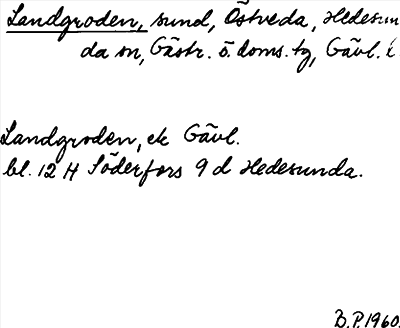 Landgroden, sund, Östveda, Hedesun
da sn, Gästr. ö. doms. tg, Gävl. l
Landgroden, ek Gävl.
bl. 12 H Söderfors 9 d Hedesunda.
B.P. 1960.